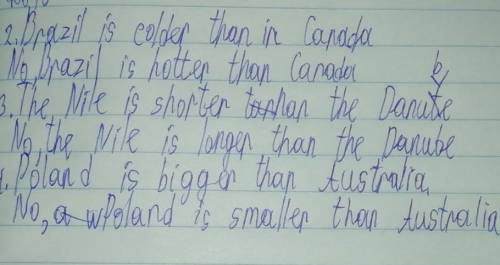 2. Brazil is colder than in Canada
No, Brazil is hotter than Canada
3. The Nile is shorter than the Danube
No, the Nile is longer than the Danube
4. Poland is bigger than Australia,
No, Poland is smaller than Australia